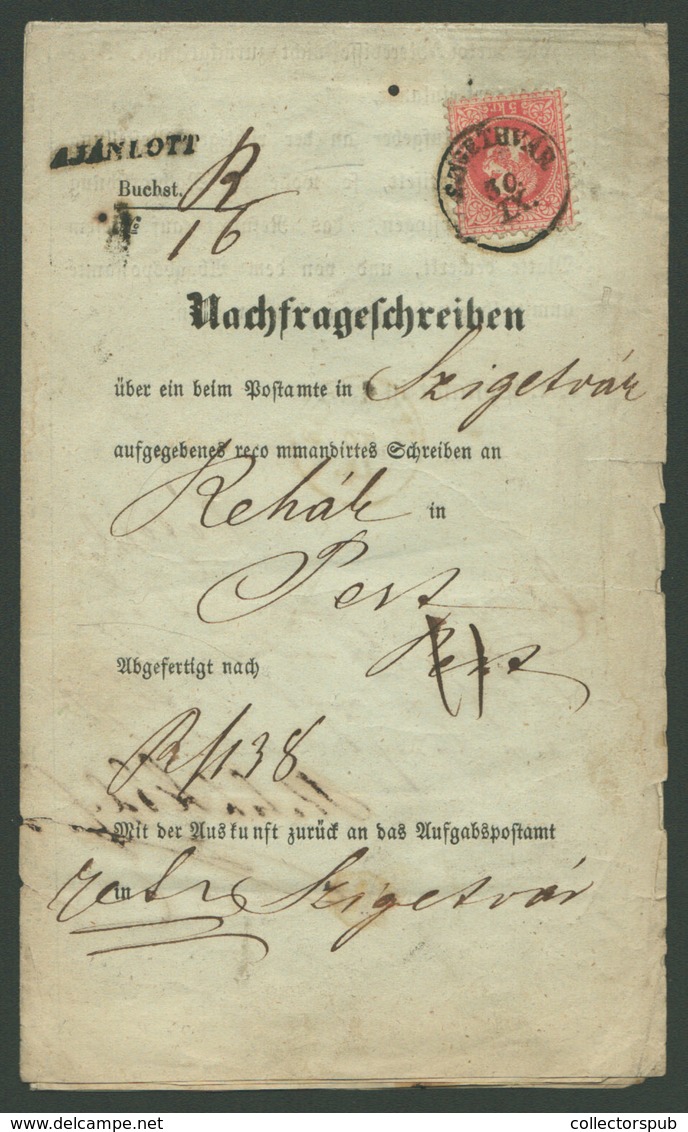 AJÁNLOTT
Buchst. R
16
5 kr
SZIGETHVÁR
30.
IX.
Nachfrageschreiben
über ein beim Postamte in Szigetvár
aufgegebenes reco mmandirtes Schreiben an
Rehák in
Pest
Abgefertigt nach Pest
R/138
Mit der Auskunft zurück an das Aufgabspostamt
in Szigetvár
© CollectorsPub
collectorspub.com